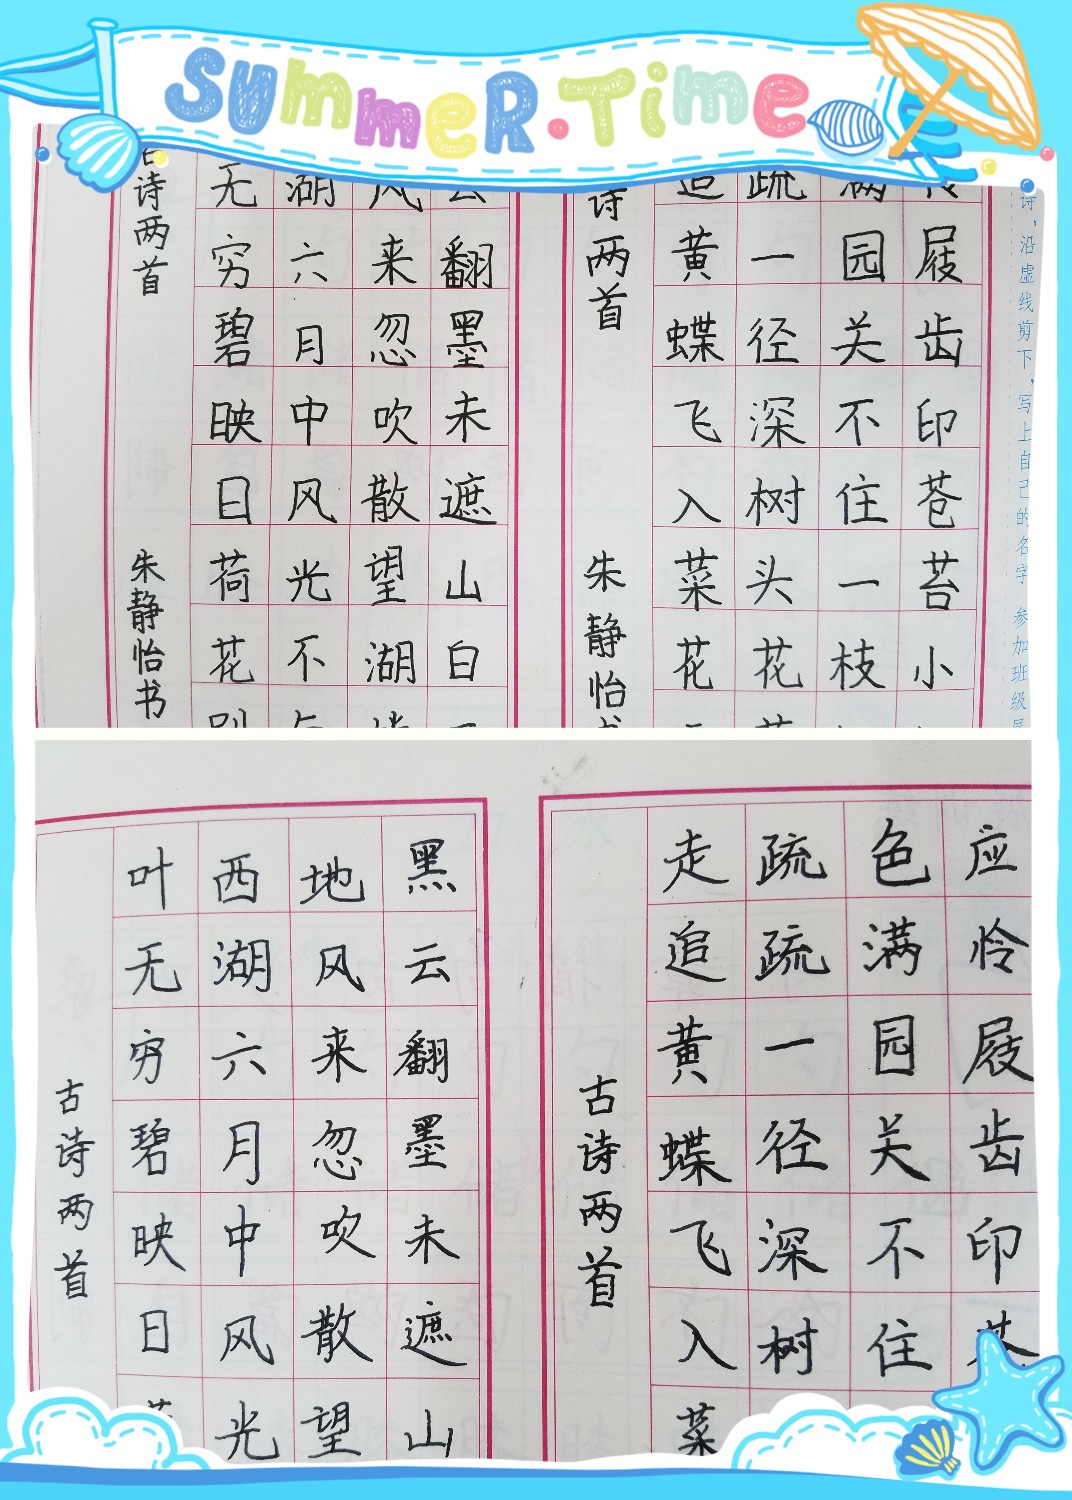 SUMMER·TIME
诗，沿虚线剪下，写上自己的名字 参加班级
屐齿印苍苔小
满园关不住一枝
疏一径深树头花
追黄蝶飞入菜花
诗两首 朱静怡书
云翻墨未遮山白
风来忽吹散望湖
湖六月中风光不
无穷碧映日荷花
古诗两首 朱静怡书
应怜屐齿印苍
色满园关不住
疏疏一径深树
走追黄蝶飞入菜
古诗两首
黑云翻墨未遮山
地风来忽吹散望
西湖六月中风光
叶无穷碧映日
古诗两首